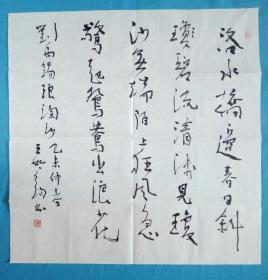 洛水橋邊春日斜
瓊碧流清淺見瓊
沙無端陌上狂風急
驚起鴛鴦出浪花
劉禹錫浪淘沙 乙未仲
王